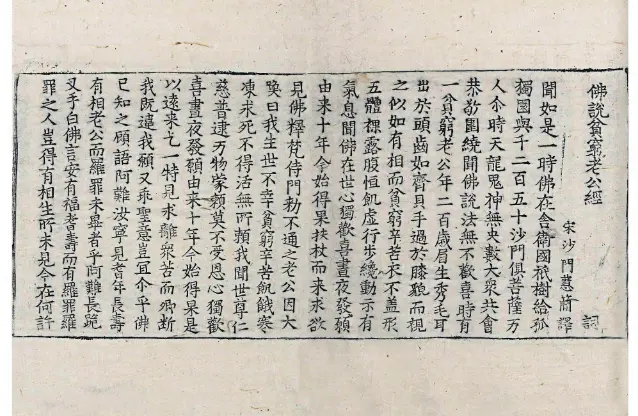 佛說貧窮老公經 詞
宋沙門慧簡譯
聞如是一時佛在舍衛國祇樹給孤
獨園與千二百五十沙門俱菩薩万
人尒時天龍鬼神無央數大衆共會
恭敬圍繞聞佛說法無不歡喜時有
一貧窮老公年二百歲眉生秀毛耳
出於頭齒如齊貝手過於膝貌而視
之似如有相而貧窮辛苦衣不盖形
五體裸露腹恒飢虛行步纔動示有
氣息聞佛在世心獨歡喜晝夜發願
由來十年今始得果扶杖而來求欲
見佛釋梵侍門勑不通之老公因大
喚曰我生世不幸貧窮辛苦飢餓寒
凍求死不得活無所賴我聞世尊仁
慈普逮万物蒙賴莫不受恩心獨歡
喜晝夜發願由來十年今始得果是
以遠來乞一特見求離衆苦而卿断
我既違我願又乖聖意豈宜尒乎佛
已知之顧語阿難汝寧見耆年長壽
有相老公而羅罪未畢者乎阿難長跪
叉手白佛言安有福耆壽而有羅罪羅
罪之人豈得有相生所未見今在何許